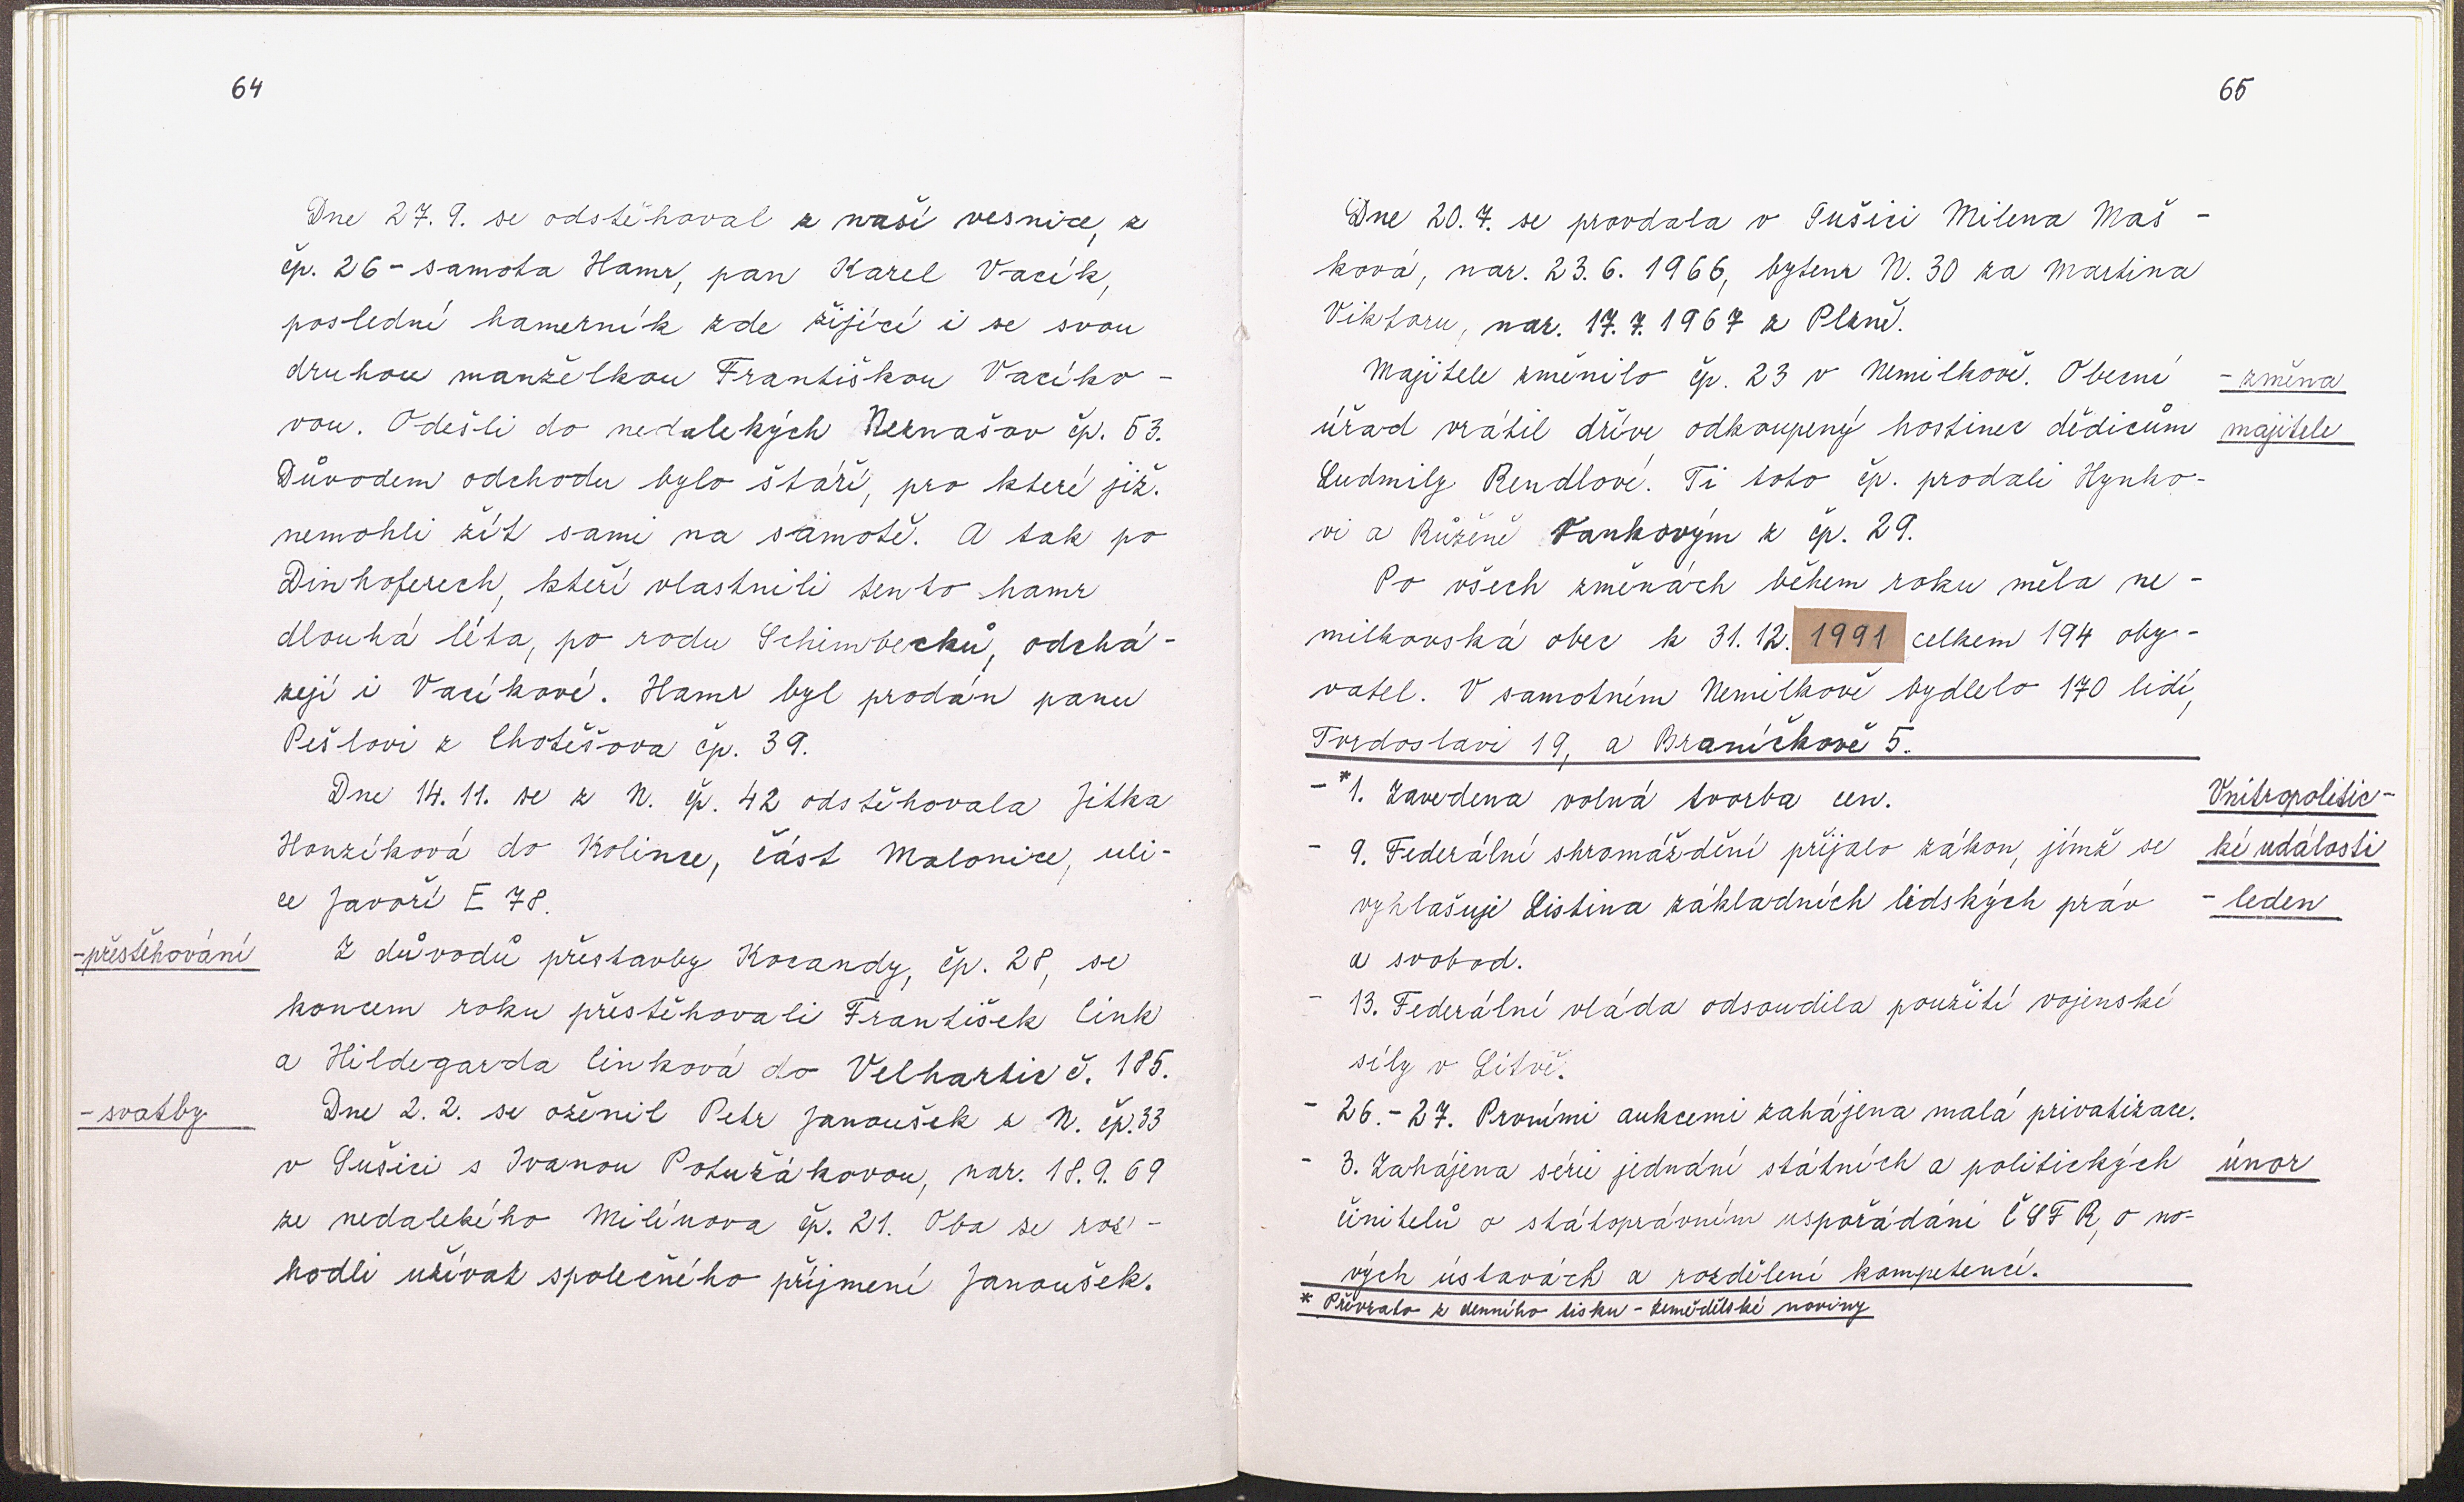 64
Dne 27. 9. se odstěhoval z naší vesnice, z
čp. 26 - samota Hamr, pan Karel Vacík,
poslední hamerník zde žijící i se svou
druhou manželkou Františkou Vacíko-
vou. Odešli do nedalekých Neznašov čp. 53.
Důvodem odchodu bylo stáří, pro které již
nemohli žít sami na samotě. A tak po
Dinhoferech, kteří vlastnili tento hamr
dlouhá léta, po rodu Schimbecků, odchá-
zejí i Vacíkové. Hamr byl prodán panu
Pešlovi z Chotěšova čp. 39.
Dne 14. 11. se z N. čp. 42 odstěhovala Jitka
Honzíková do Kolince, část Malonice, uli-
ce Javoří E 78.
-přestěhování
Z důvodů přestavby Kocandy, čp. 28, se
koncem roku přestěhovali František Cink
a Hildegarda Cinková do Velhartic č. 185.
-svatby
Dne 2. 2. se oženil Petr Janoušek z N. čp. 33
v Sušici s Ivanou Potužákovou, nar. 18. 9. 69
ze nedalekého Milínova čp. 21. Oba se roz-
hodli užívat společného příjmení Janoušek.
65
Dne 20. 7. se provdala v Sušici Milena Maš-
ková, nar. 23. 6. 1966, bytem N. 30 za Martina
Viktoru, nar. 17. 7. 1967 z Plzně.
Majitele změnilo čp. 23 v Nemilkově. Obecní
-změna
úřad vrátil dříve odkoupený hostinec dědicům
majitele
Ludmily Rendlové. Ti toto čp. prodali Hynko-
vi a Růženě Vankovým z čp. 29.
Po všech změnách během roku měla ne-
milkovská obec k 31. 12. 1991 celkem 194 oby-
vatel. V samotném Nemilkově bydlelo 170 lidí,
Tvrdoslavi 19, a Braníčkově 5.
- *1. Zavedena volná tvorba cen.
Vnitropolitic-
- 9. Federální shromáždění přijalo zákon, jímž se
ké události
vyhlašuje Listina základních lidských práv
- leden
a svobod.
- 13. Federální vláda odsoudila použití vojenské
síly v Litvě.
- 26. - 27. Prvními aukcemi zahájena malá privatizace.
- 3. Zahájena série jednání státních a politických
únor
činitelů o státoprávním uspořádání ČSFR, o no-
vých ústavách a rozdělení kompetencí.
* Převzato z denního tisku - Zemědělské noviny